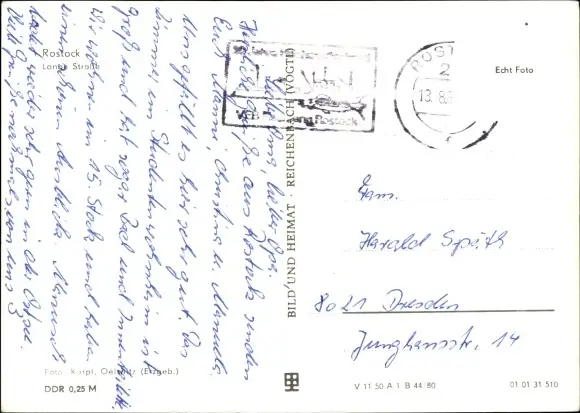 Rostock
Lange Straße
Echt Foto
ROST
2
13.8.
Rostock
Liebe Oma, lieber Opa!
Herzliche Grüße aus Rostock senden
Euch Mami, Christina u. Manuela.
Uns gefällt es hier sehr gut. Das
Zimmer im Studentenwohnheim ist
groß und hat sogar Bad und
Wir wohnen im 15. Stock und haben
einen schönen Ausblick. Manuel
badet wieder sehr gern in der Ostsee.
Viele Grüße nochmals von uns 3
BILD UND HEIMAT REICHENBACH (VOGTL)
Fam.
Harald Späth
8021 Dresden
Junghansstr. 14
Foto: Karpf, Oelsnitz (Erzgeb.)
DDR 0,25 M
V 11 50 A 1 B 44/80
01 01 31 510